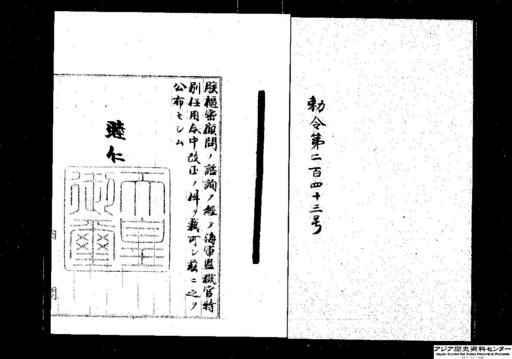 勅令第二百四十三号
朕枢密顧問ノ諮詢ノ経テ海軍監獄官特
別任用令中改正ノ件ヲ裁可シ茲ニ之ヲ
公布セシム
睦仁
天皇
御璽
内閣
アジア歴史資料センター
Japan Center for Asian Historical Records